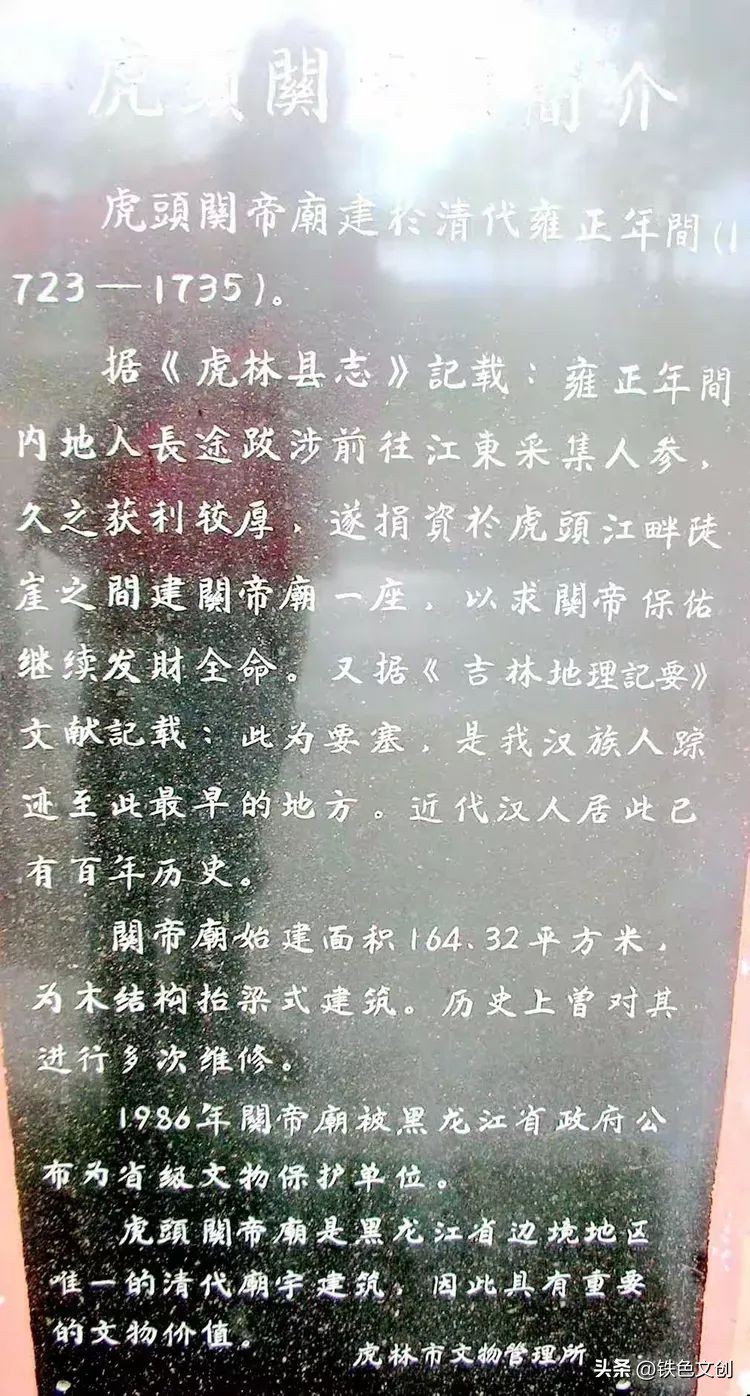 虎頭關 簡介
虎頭關帝廟建於清代雍正年間(1
723—1735)。
据《虎林县志》記载：雍正年間
内地人長途跋涉前往江東采集人参，
久之获利较厚，遂捐資於虎頭江畔陡
崖之間建關帝廟一座，以求關帝保佑
继续发財全命。又据《吉林地理記要》
文献記载：此为要塞，是我汉族人踪
迹至此最早的地方。近代汉人居此已
有百年历史。
關帝廟始建面积164.32平方米，
为木结构抬梁式建筑。历史上曾对其
进行多次维修。
1986年關帝廟被黑龙江省政府公
布为省级文物保护单位。
虎頭關帝廟是黑龙江省边境地区
唯一的清代廟宇建筑，因此具有重要
的文物价值。
虎林市文物管理所
头条 @铁色文创